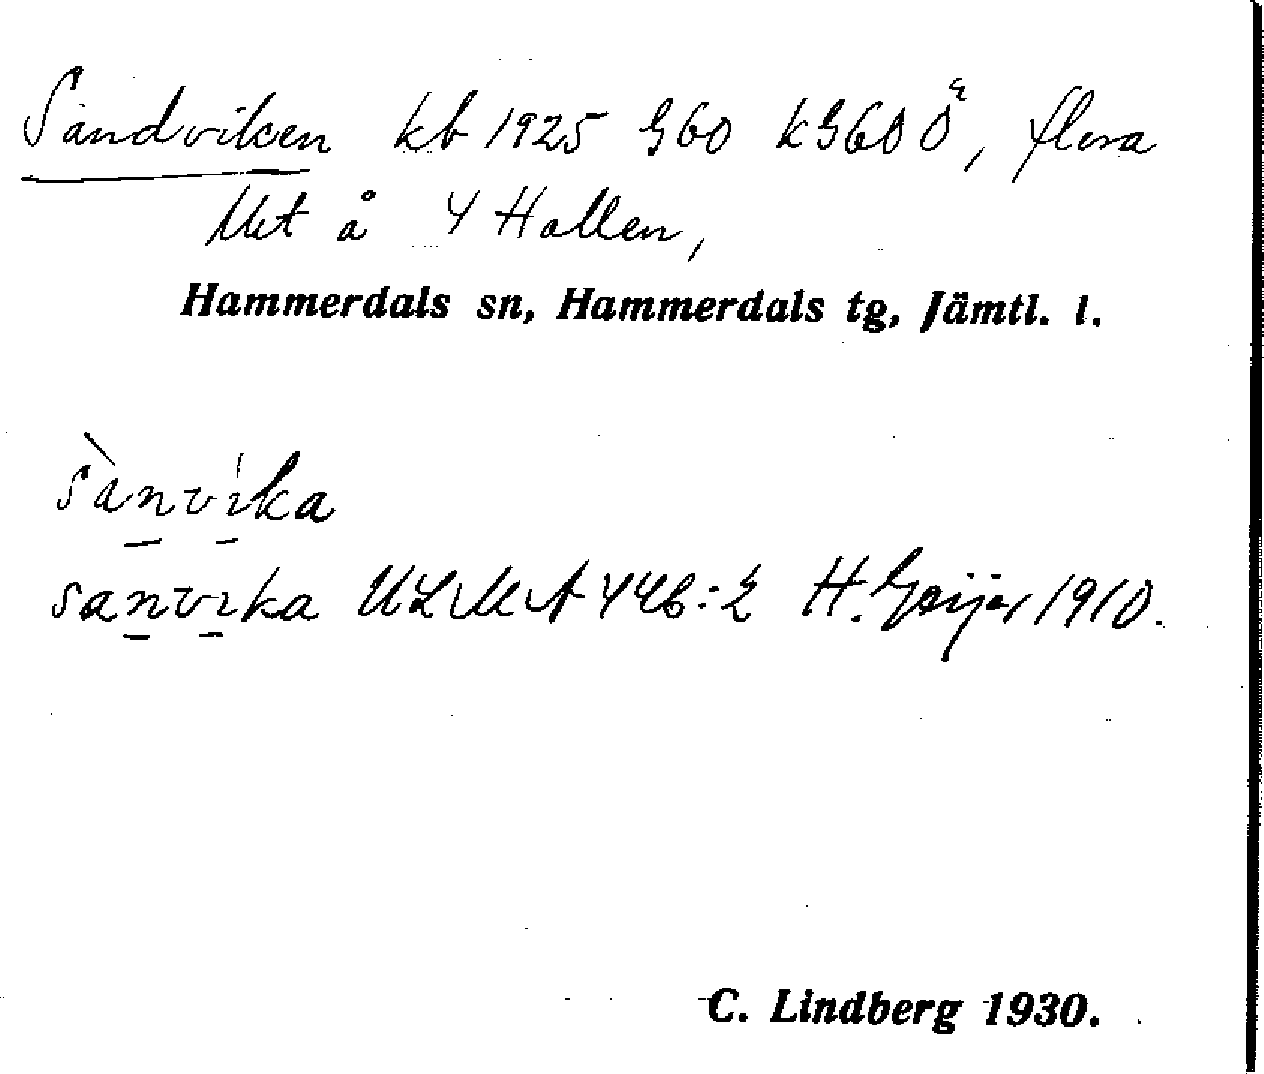 Sandviken kb 1925 G60 kG60 Ö, flera
lht å 4 Hallen,
Hammerdals sn, Hammerdals tg, Jämtl. l.
sànvika
sanvika ULMA 446:2 H. Geijer 1910.
C. Lindberg 1930.